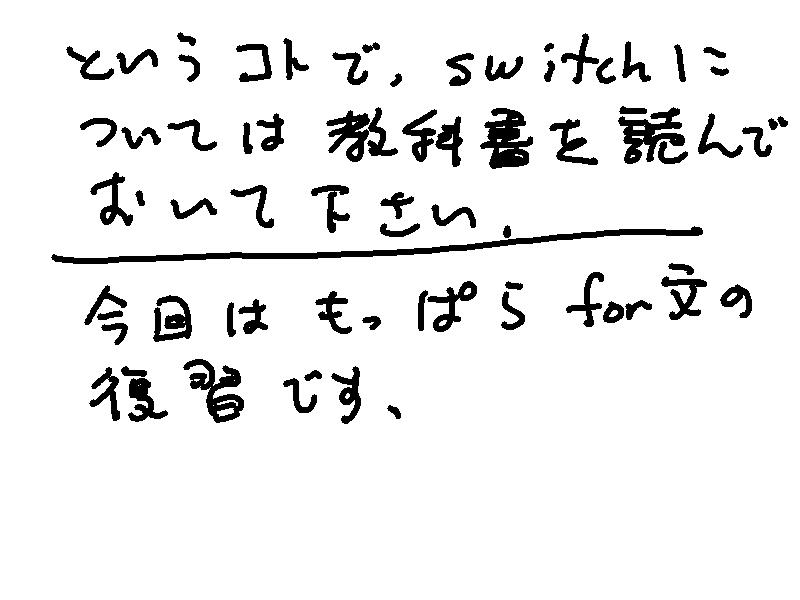 というコトで, switchに
ついては教科書を読んで
おいて下さい.
今回はもっぱらfor文の
復習です、